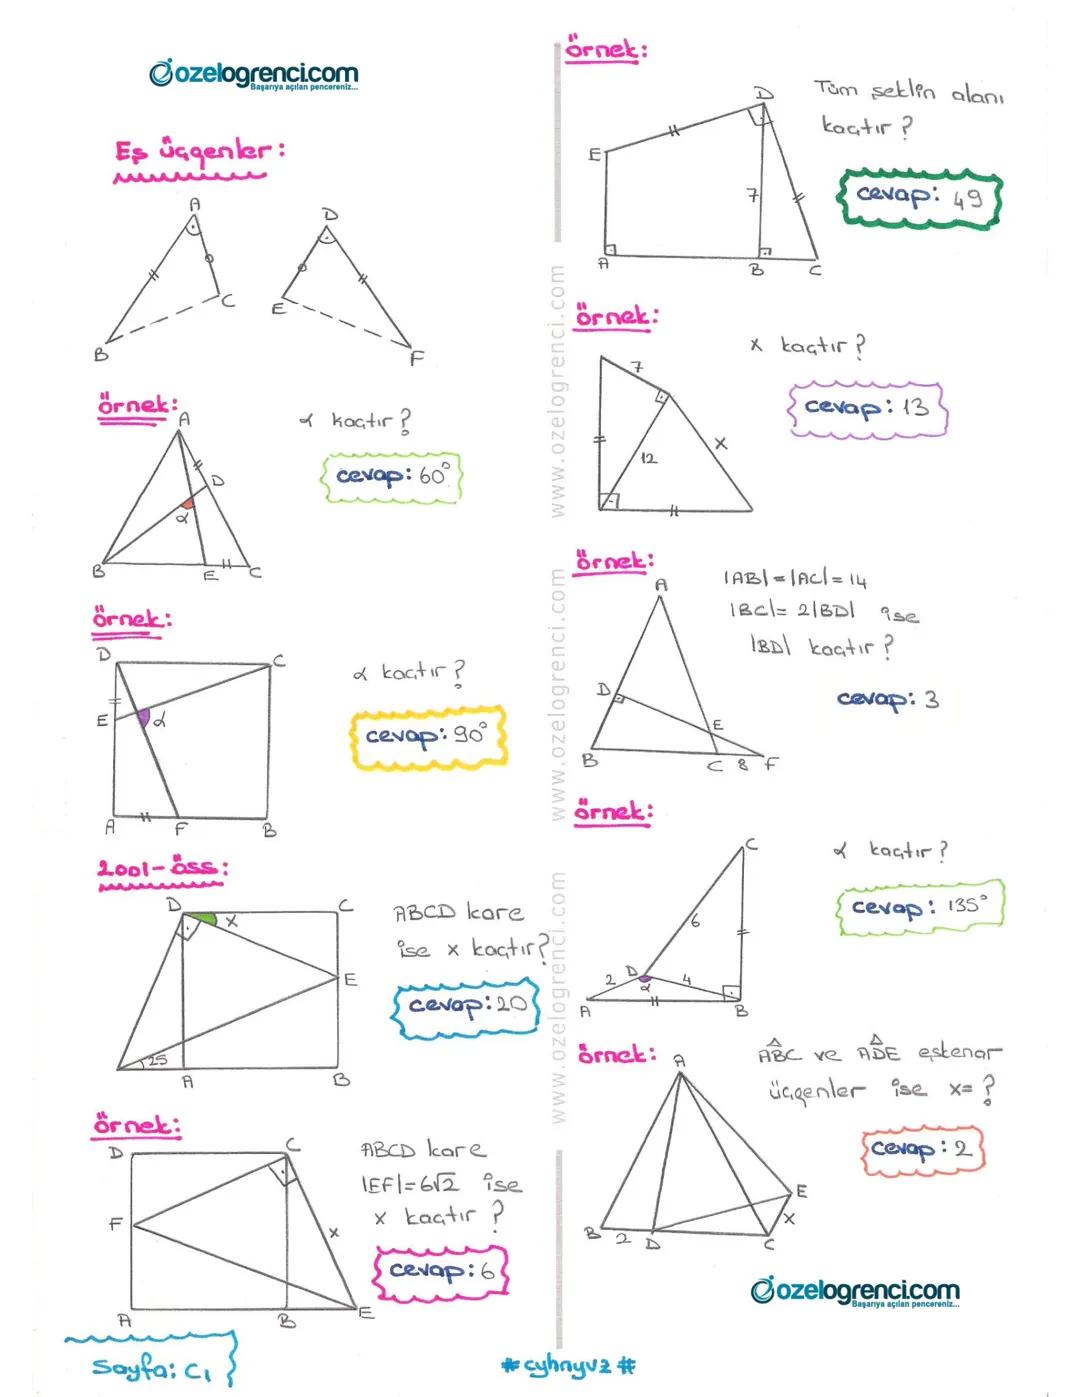 özelogrenci.com
Başarıya açılan pencereniz...
Eş üçgenler:
A
D
C
E
B
F
örnek:
α kaçtır?
cevap: 60°
A
D
α
B
E
C
örnek:
α kaçtır?
cevap: 90°
D
C
E
α
A
F
B
2001-öss:
ABCD kare
ise x kaçtır?
cevap: 20
D
C
x
E
25
A
B
örnek:
ABCD kare
|EF|=6√2 ise
x kaçtır?
cevap: 6
D
C
F
x
A
B
E
Sayfa: C1
örnek:
Tüm şeklin alanı
kaçtır?
cevap: 49
D
E
7
A
B
C
örnek:
x kaçtır?
cevap: 13
7
x
12
örnek:
|AB|=|AC|=14
|BC|=2|BD| ise
|BD| kaçtır?
cevap: 3
A
D
E
B
C
8
F
örnek:
α kaçtır?
cevap: 135°
C
6
2
D
4
α
A
B
örnek:
ABC ve ADE eşkenar
üçgenler ise x=?
cevap: 2
A
E
x
B
2
D
C
özelogrenci.com
Başarıya açılan pencereniz...
#cyhnyvz#
www.ozelogrenci.com
www.ozelogrenci.com
www.ozelogrenci.com